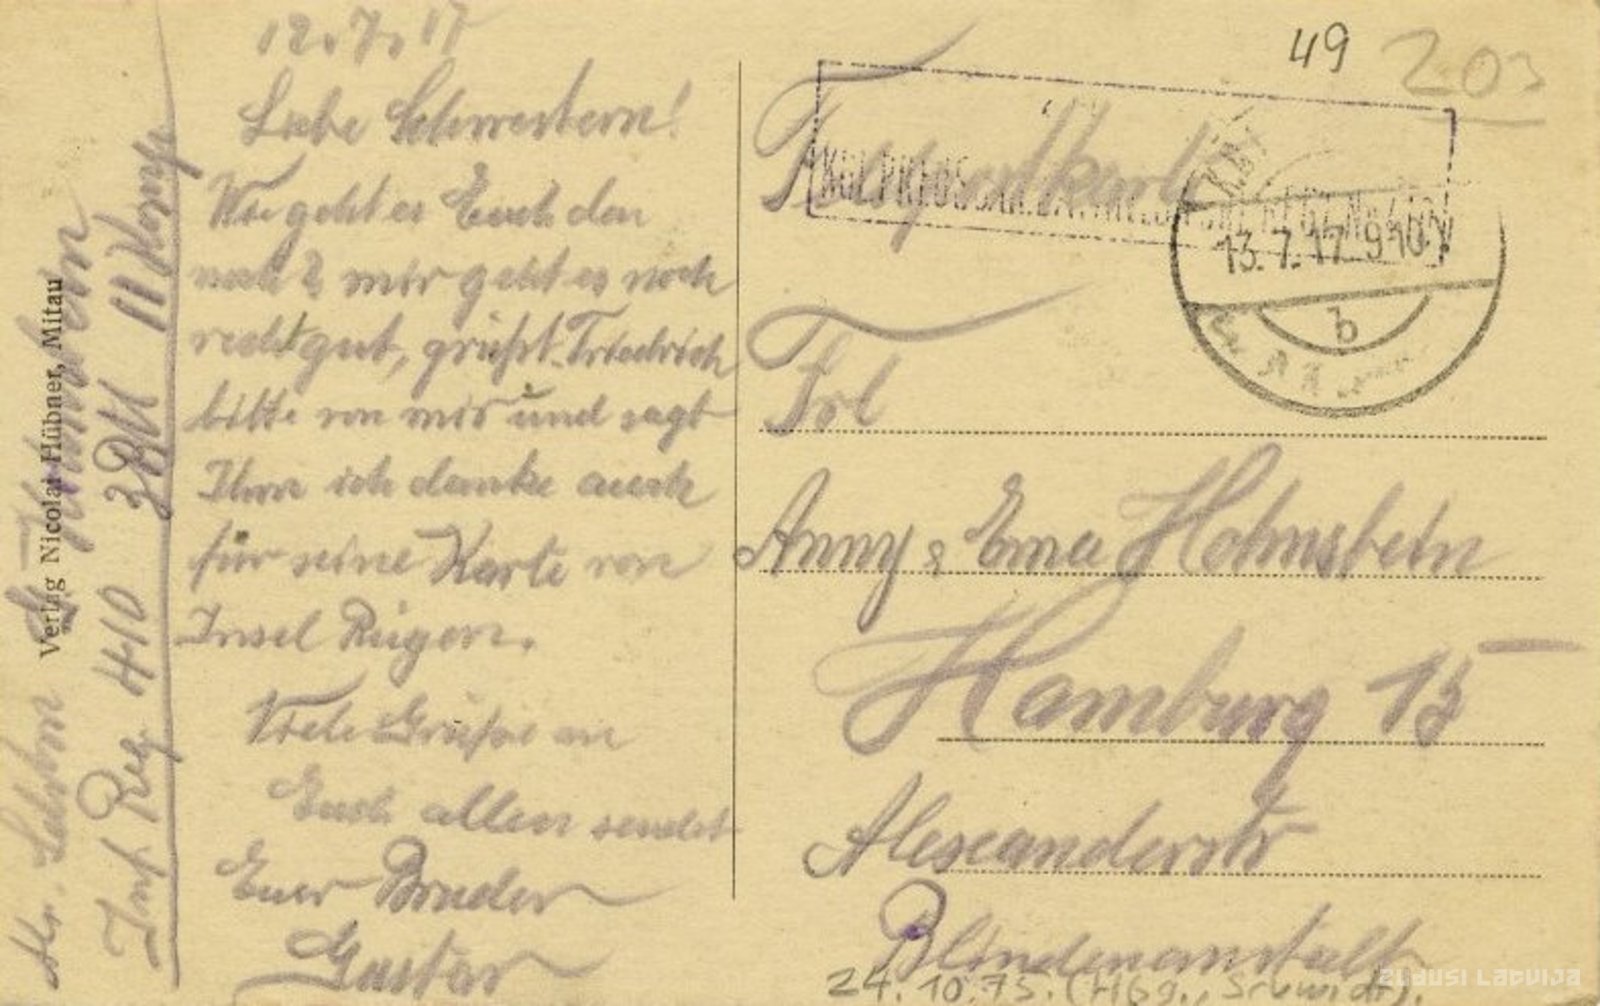 12.7.17
Liebe Schwestern!
Wie geht es Euch den
noch? mir geht es noch
recht gut, grüßt Friedrich
bitte von mir und sagt
Ihm ich danke auch
für seine Karte von
Insel Rügen.
Viele Grüße an
Euch allen sendet
Euer Bruder
Gustav
Inf Reg 410 3 Btl 11 Komp
Verlag Nicolai Hübner, Mitau
49
203
Feldpostkarte
13.7.17. 9-10V
b
Frl
Anny & Ema Holmstein
Hamburg 15
Alexanderstr
Blindenanstalt
24.10.75. (Hbg., Schmidt)
ZUDUSI LATVIJA